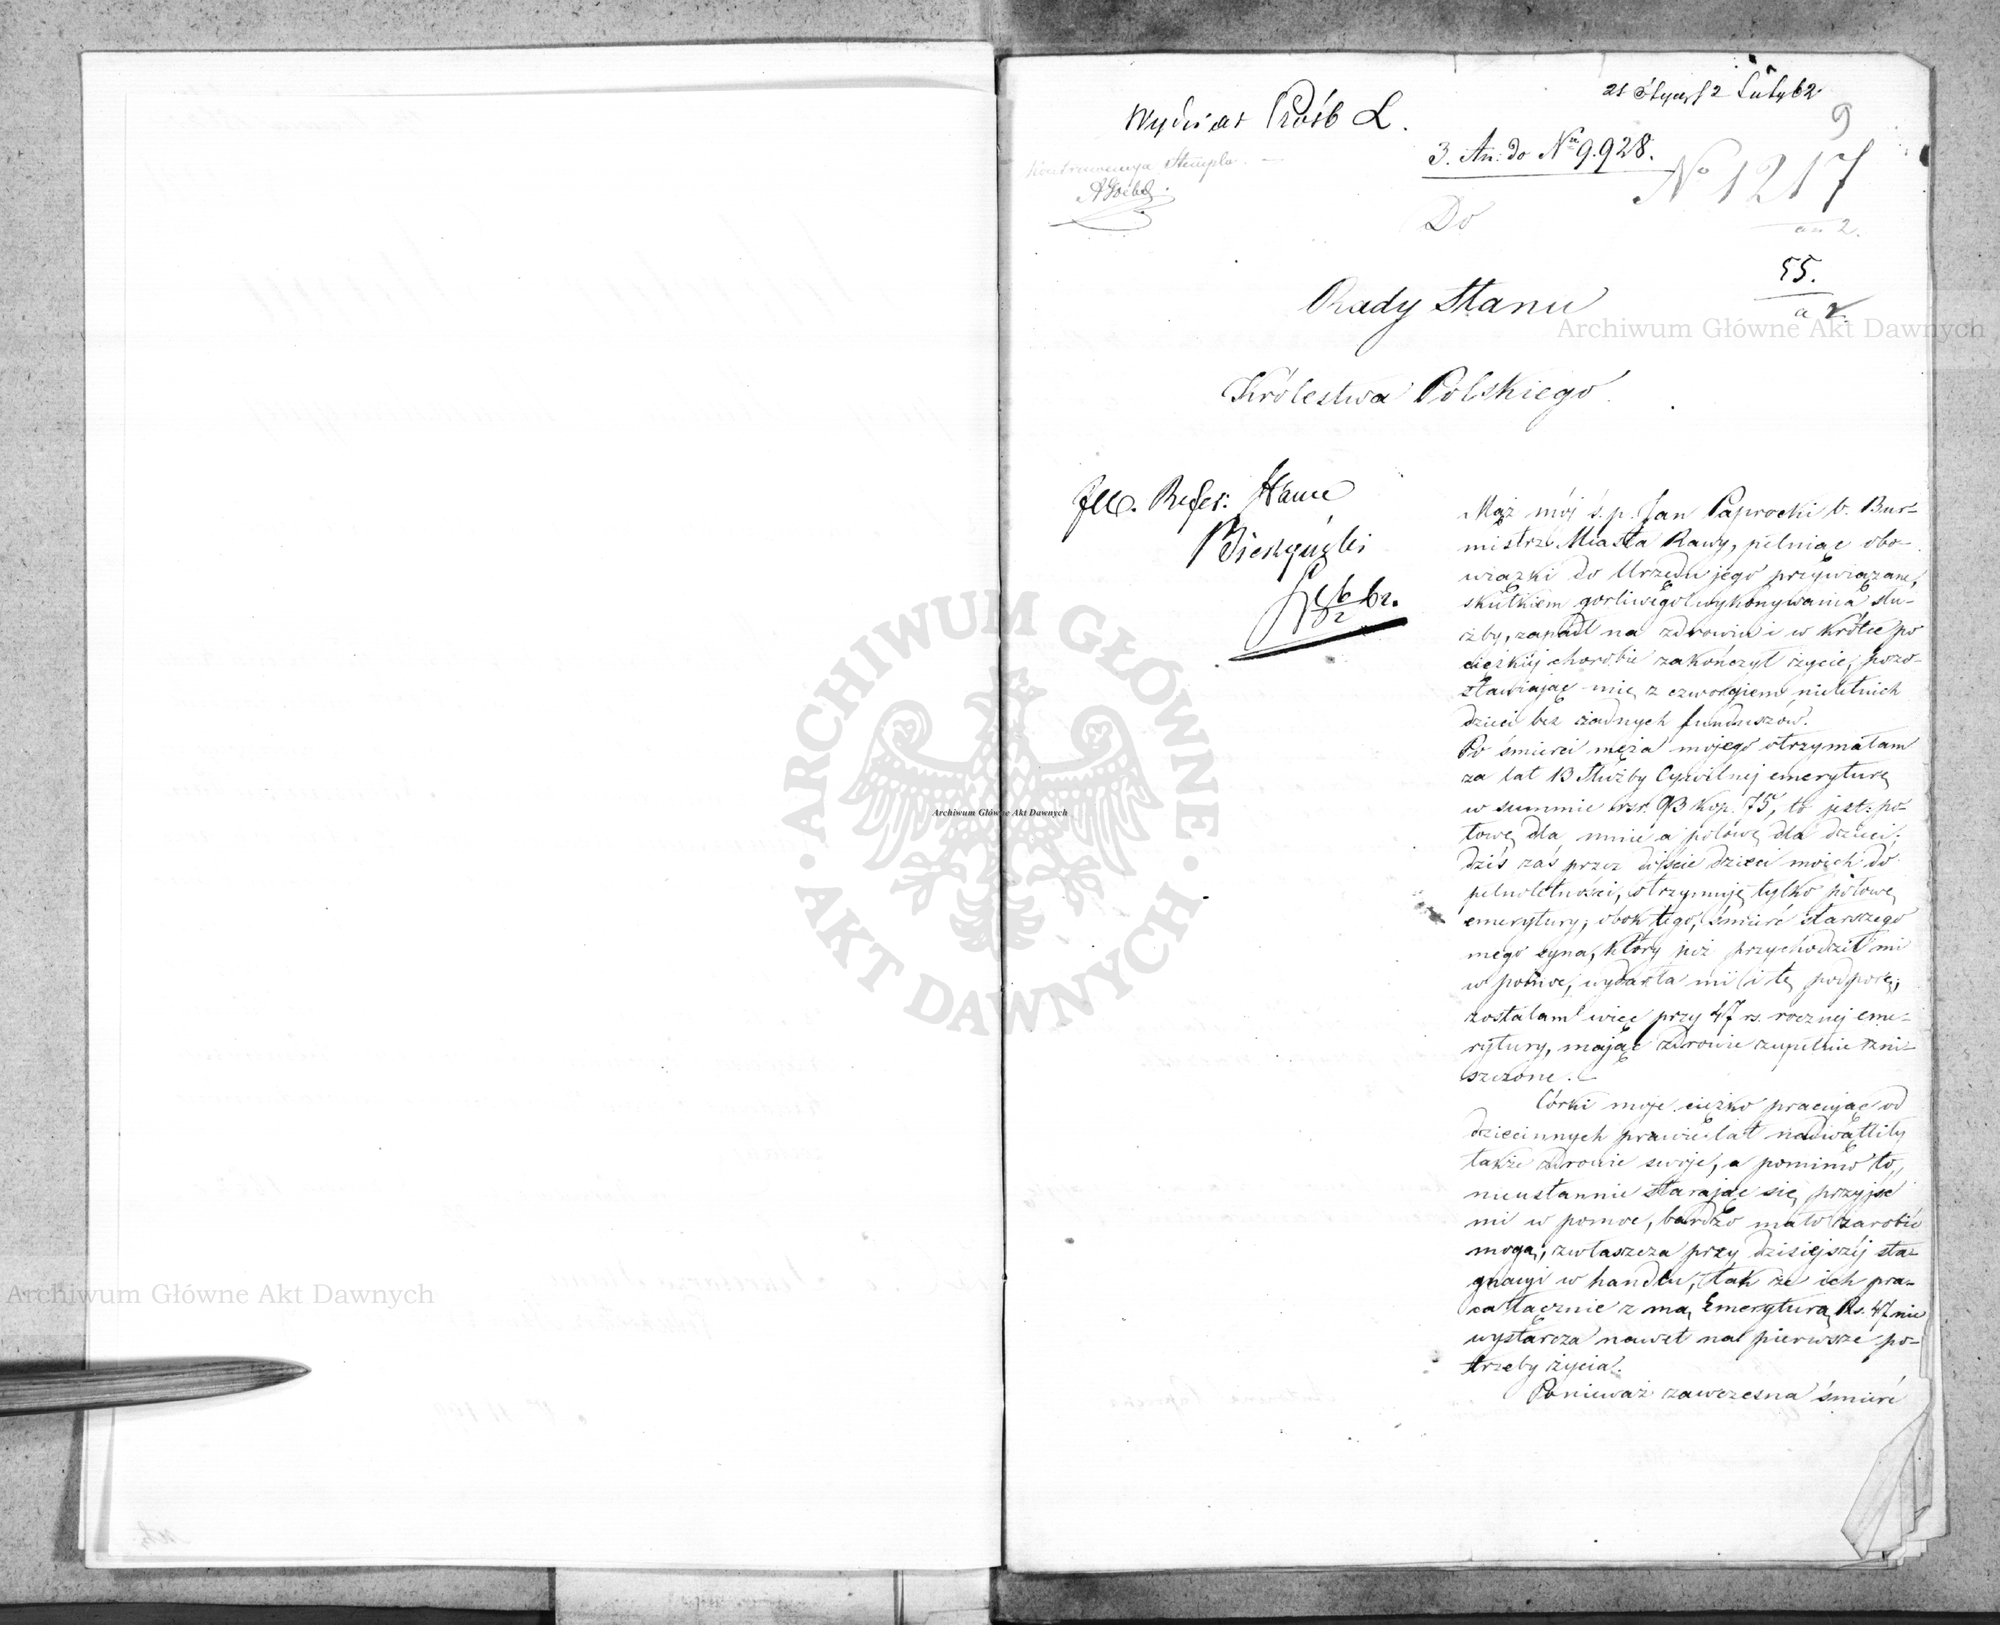 21 Stycz/2 Luty 62
9
Wydział Próśb L.
3. An: do Nru 9.928.
No 1217
an 2.
Kontrawencya Stempla.
Do
55.
a 2.
Rady Stanu
Królestwa Polskiego.
JW. Refer: Stanu
6/2 62.
Mąż mój ś. p. Jan Paprocki b. Bur-
mistrz Miasta Rawy, pełniąc obo-
wiązki do Urzędu jego przywiązane,
skutkiem gorliwego wykonywania słu-
żby, zapadł na zdrowiu i w krótce po
ciężkiej chorobie zakończył życie, pozo-
stawiając mię z czworgiem nieletnich
dzieci bez żadnych funduszów.
Po śmierci męża mojego otrzymałam
za lat 13 Służby Cywilnej emeryturę
w summie rsr. 93 kop. 75, to jest: po-
łowę dla mnie a połowę dla dzieci;
dziś zaś przez dojście dzieci moich do
pełnoletności, otrzymuję tylko połowę
emerytury; obok tego, śmierć starszego
mego syna, który już przychodził mi
w pomoc, wydarła mi i tę podporę;
zostałam więc przy 47 rs. rocznej eme-
rytury, mając zdrowie zupełnie zni-
szczone.
Córki moje ciężko pracując od
dziecinnych prawie lat nadwątliły
także zdrowie swoje, a pomimo to,
nieustannie starając się przyjść
mi w pomoc, bardzo mało zarobić
mogą; zwłaszcza przy dzisiejszej sta-
gnacyi w handlu, tak że ich pra-
ca łącznie z mą Emeryturą Rs. 47 nie
wystarcza nawet na pierwsze po-
trzeby życia.
Ponieważ zawczesna śmierć
Archiwum Główne Akt Dawnych
Archiwum Główne Akt Dawnych
Archiwum Główne Akt Dawnych
ARCHIWUM GŁÓWNE
AKT DAWNYCH